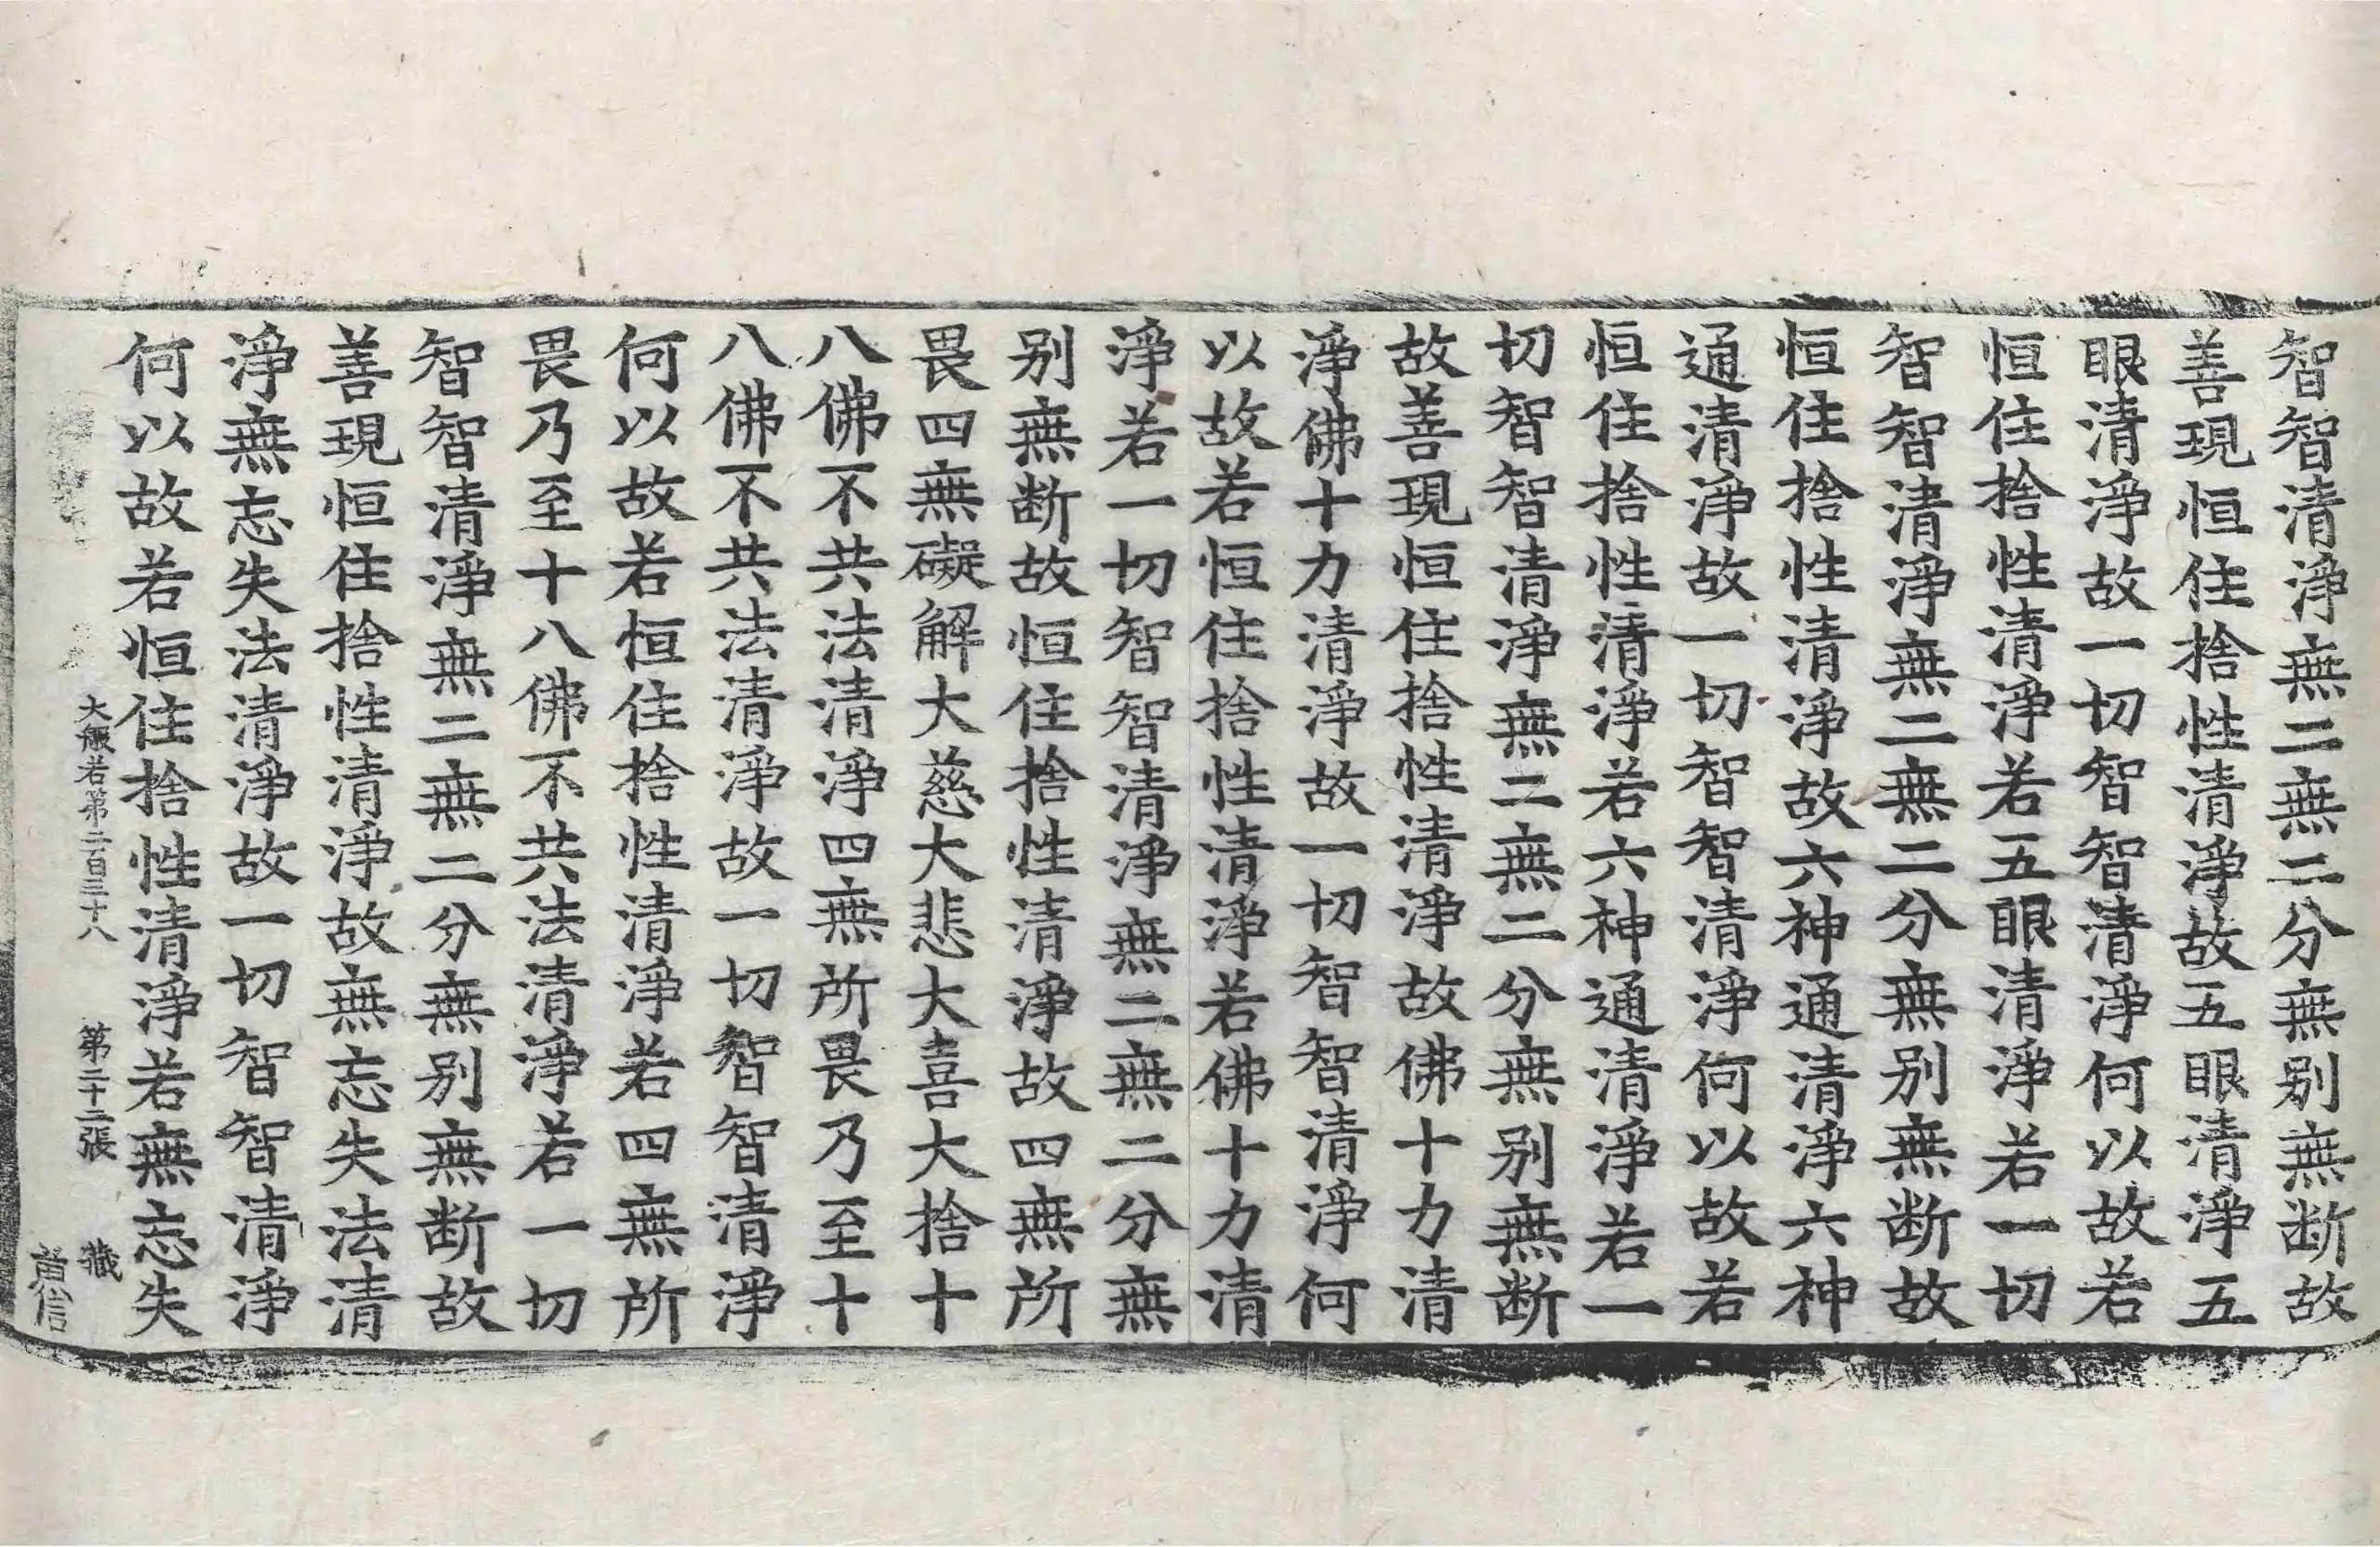 智智清淨無二無二分無別無断故
善現恒住捨性清淨故五眼清淨五
眼清淨故一切智智清淨何以故若
恒住捨性清淨若五眼清淨若一切
智智清淨無二無二分無別無断故
恒住捨性清淨故六神通清淨六神
通清淨故一切智智清淨何以故若
恒住捨性清淨若六神通清淨若一
切智智清淨無二無二分無別無断
故善現恒住捨性清淨故佛十力清
淨佛十力清淨故一切智智清淨何
以故若恒住捨性清淨若佛十力清
淨若一切智智清淨無二無二分無
別無断故恒住捨性清淨故四無所
畏四無礙解大慈大悲大喜大捨十
八佛不共法清淨四無所畏乃至十
八佛不共法清淨故一切智智清淨
何以故若恒住捨性清淨若四無所
畏乃至十八佛不共法清淨若一切
智智清淨無二無二分無別無断故
善現恒住捨性清淨故無忘失法清
淨無忘失法清淨故一切智智清淨
何以故若恒住捨性清淨若無忘失
大般若第二百三十八 第二十二張 藏
信